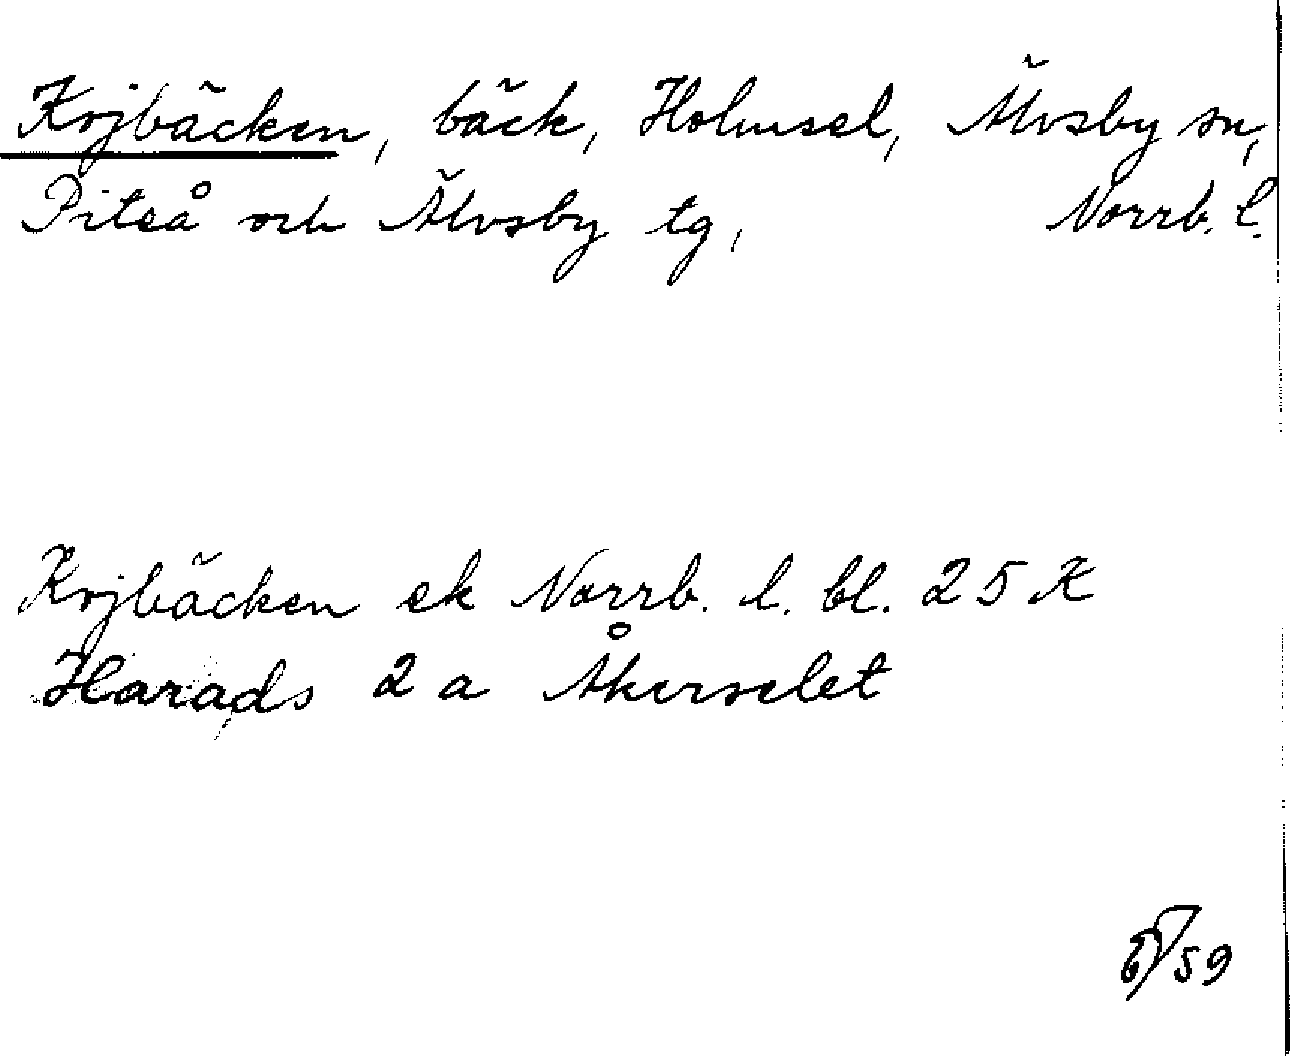 Kojbäcken, bäck, Holmsel, Älvsby sn,
Piteå och Älvsby tg, Norrb. l.
Kojbäcken ek Norrb. l. bl. 25 K
Harads 2 a Åkerselet
59